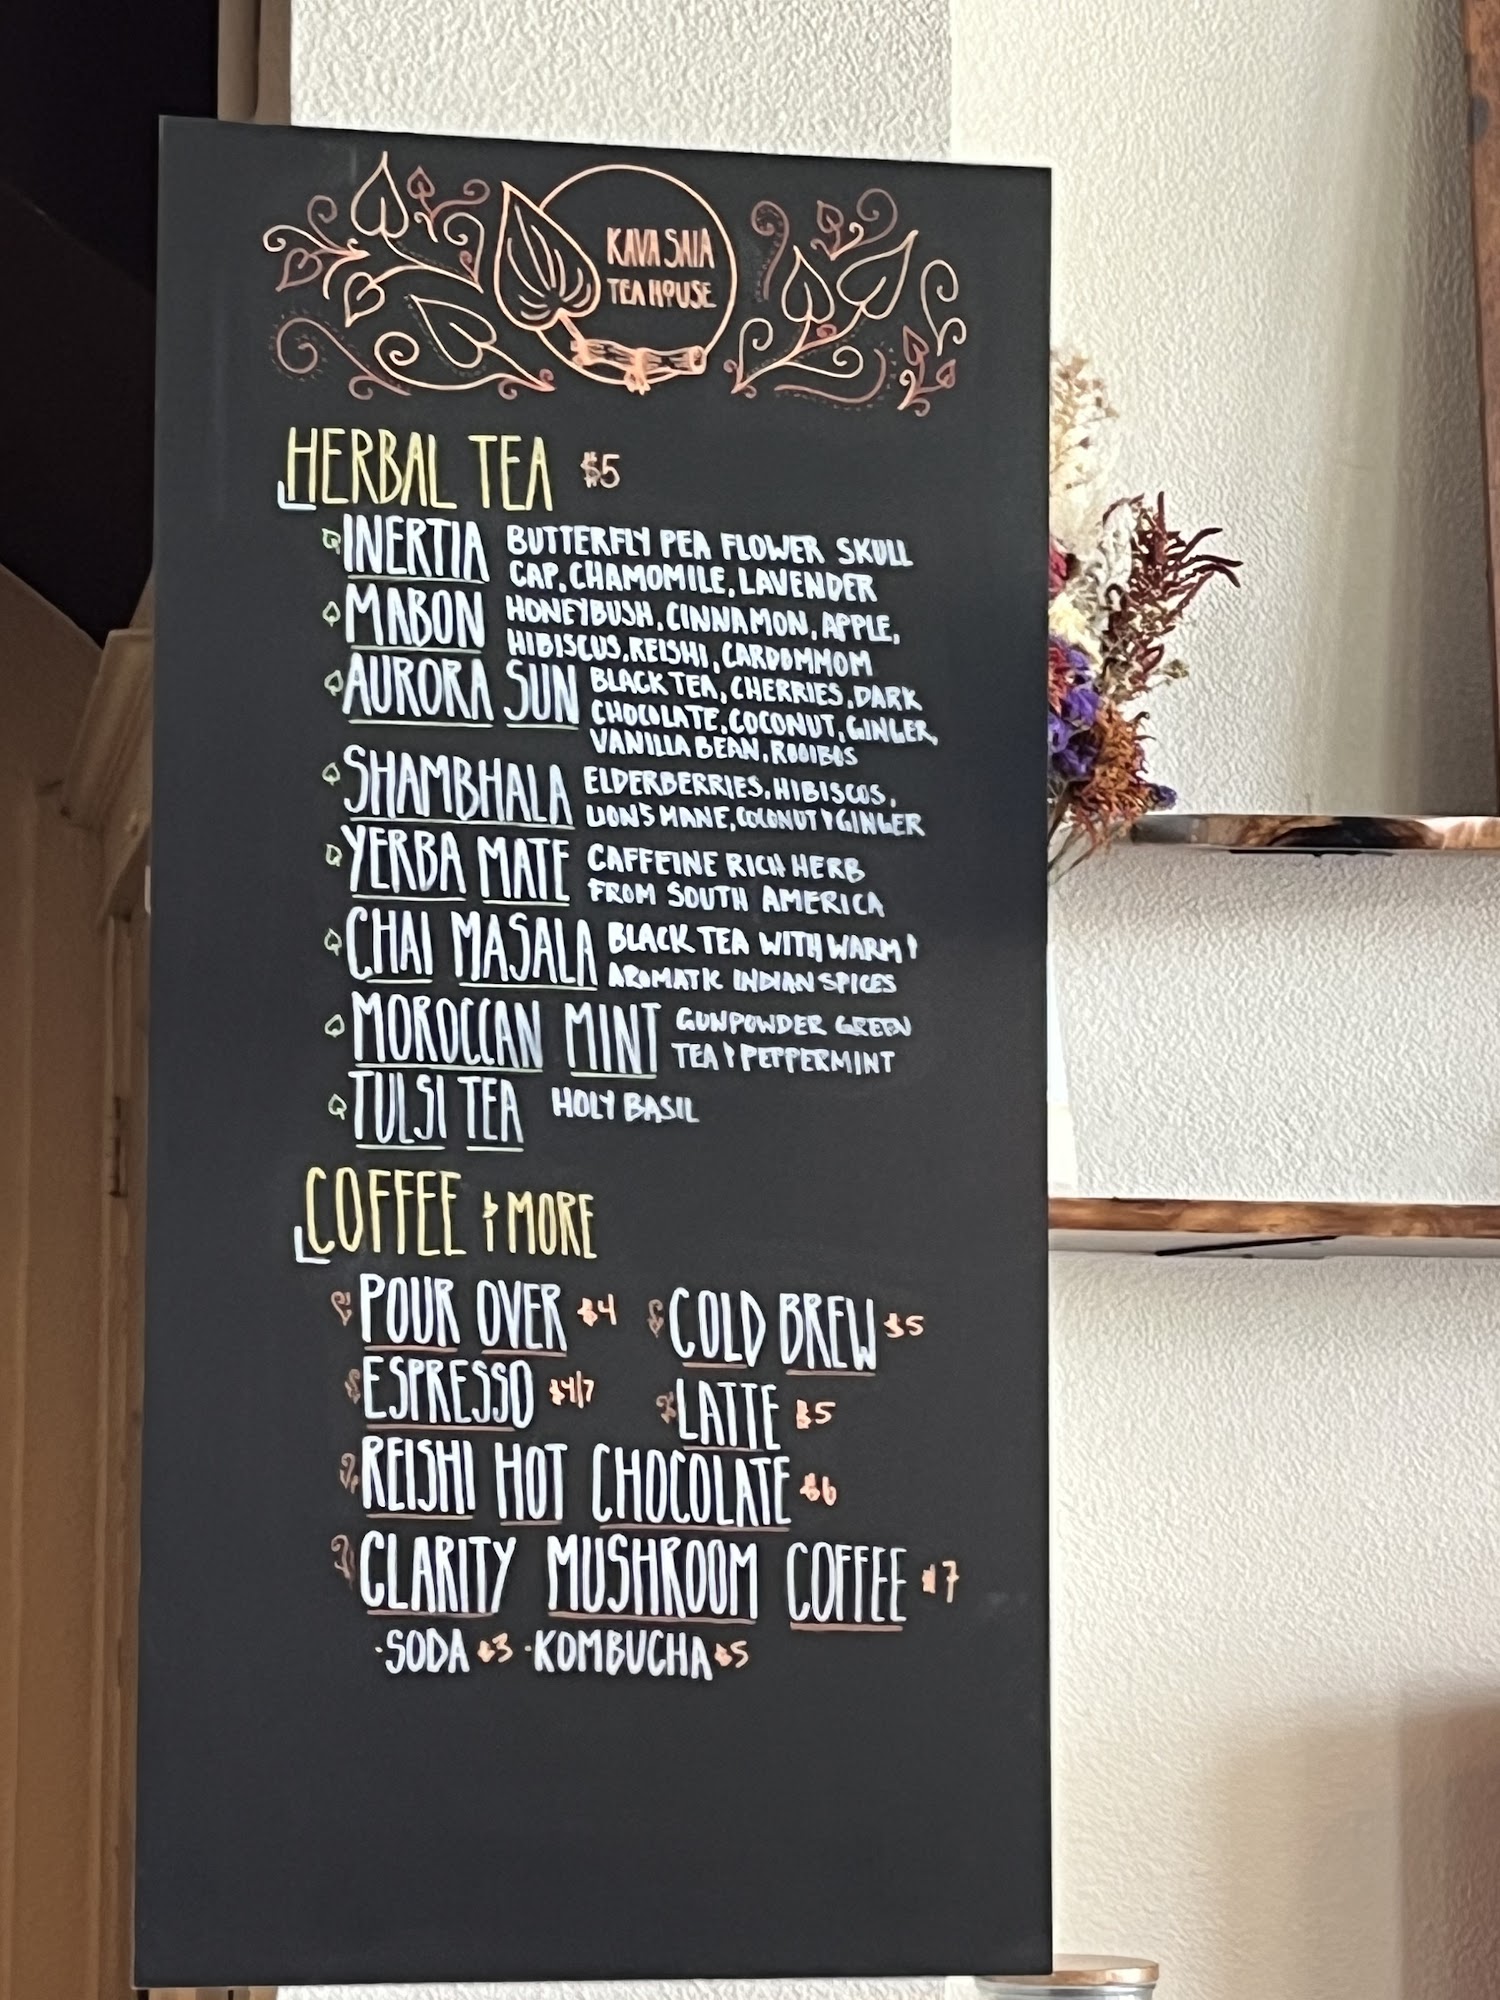 KAVA SAIA
TEA HOUSE
HERBAL TEA $5
INERTIA BUTTERFLY PEA FLOWER SKULL
CAP, CHAMOMILE, LAVENDER
MABON HONEYBUSH, CINNAMON, APPLE,
HIBISCUS, REISHI, CARDOMMOM
AURORA SUN BLACK TEA, CHERRIES, DARK
CHOCOLATE, COCONUT, GINGER,
VANILLA BEAN, ROOIBOS
SHAMBHALA ELDERBERRIES, HIBISCOS,
LION'S MANE, COCONUT & GINGER
YERBA MATE CAFFEINE RICH HERB
FROM SOUTH AMERICA
CHAI MASALA BLACK TEA WITH WARM &
AROMATIC INDIAN SPICES
MOROCCAN MINT GUNPOWDER GREEN
TEA & PEPPERMINT
TULSI TEA HOLY BASIL
COFFEE & MORE
POUR OVER $4 COLD BREW $5
ESPRESSO $4/7 LATTE $5
REISHI HOT CHOCOLATE $6
CLARITY MUSHROOM COFFEE $7
·SODA $3 ·KOMBUCHA $5